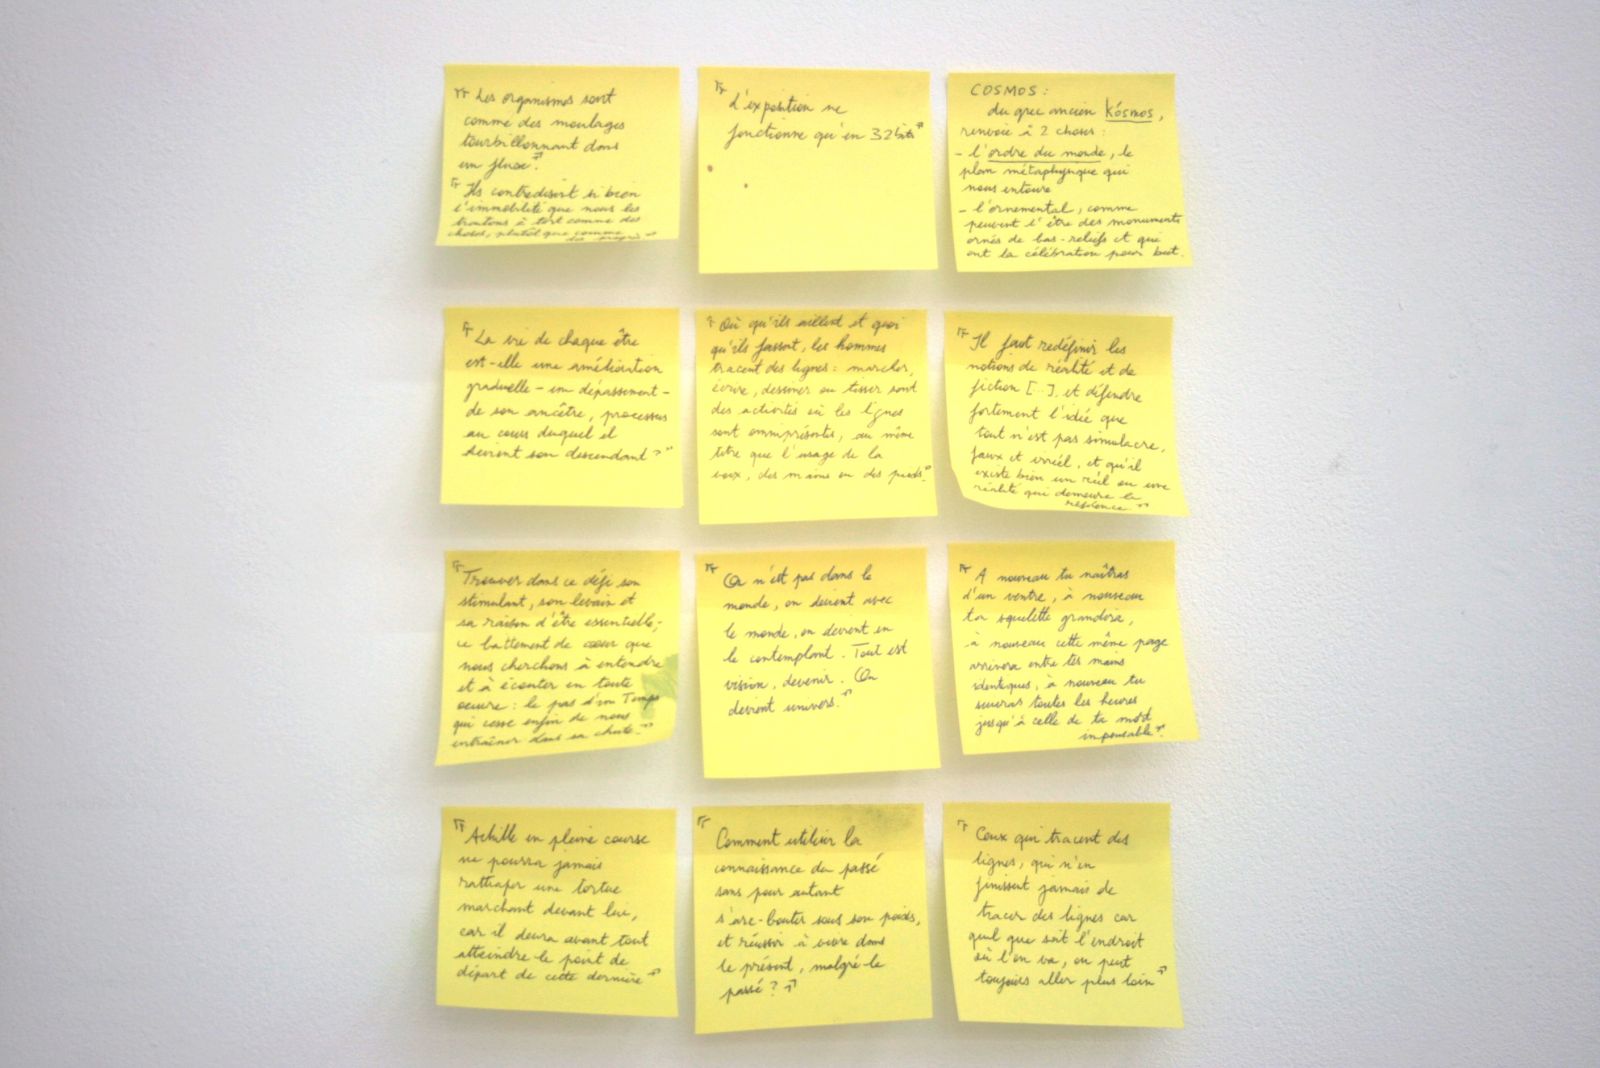 " Les organismes sont
comme des moulages
tourbillonnant dans
un fluxe".
" Ils contredisent si bien
l'immobilité que nous les
traitons à tort comme des
choses, plutôt que comme
des progrès "
" L'exposition ne
fonctionne qu'en 32bits "
COSMOS :
du grec ancien kósmos,
renvoie à 2 choses :
- l'ordre du monde, le
plan métaphysique qui
nous entoure
- l'ornemental, comme
peuvent l'être des monuments
ornés de bas-reliefs et qui
ont la célébration pour but.
" La vie de chaque être
est-elle une amélioration
graduelle - un dépassement -
de son ancêtre, processus
au cours duquel il
devient son descendant ? "
" Où qu'ils aillent et quoi
qu'ils fassent, les hommes
tracent des lignes : marcher,
écrire, dessiner ou tisser sont
des activités où les lignes
sont omniprésentes, au même
titre que l'usage de la
voix, des mains ou des pieds".
" Il faut redéfinir les
notions de réalité et de
fiction [...], et défendre
fortement l'idée que
tout n'est pas simulacre,
faux et irréel, et qu'il
existe bien un réel ou une
réalité qui demeure la
référence "
" Trouver dans ce défi son
stimulant, son levain et
sa raison d'être essentielle,-
ce battement de cœur que
nous cherchons à entendre
et à écouter en toute
oeuvre : le pas d'un Temps
qui cesse enfin de nous
entraîner dans sa chute. "
" On n'est pas dans le
monde, on devient avec
le monde, on devient en
le contemplant. Tout est
vision, devenir. On
devient univers. "
" A nouveau tu naîtras
d'un ventre, à nouveau
ton squelette grandira,
à nouveau cette même page
arrivera entre tes mains
identiques, à nouveau tu
suivras toutes les heures
jusqu'à celle de ta mort
impensable".
" Achille en pleine course
ne pourra jamais
rattraper une tortue
marchant devant lui,
car il devra avant tout
atteindre le point de
départ de cette dernière "
" Comment utiliser la
connaissance du passé
sans pour autant
s'arc-bouter sous son poids,
et réussir à vivre dans
le présent, malgré le
passé ? "
" Ceux qui tracent des
lignes, qui n'en
finissent jamais de
tracer des lignes car
quel que soit l'endroit
où l'on va, on peut
toujours aller plus loin "